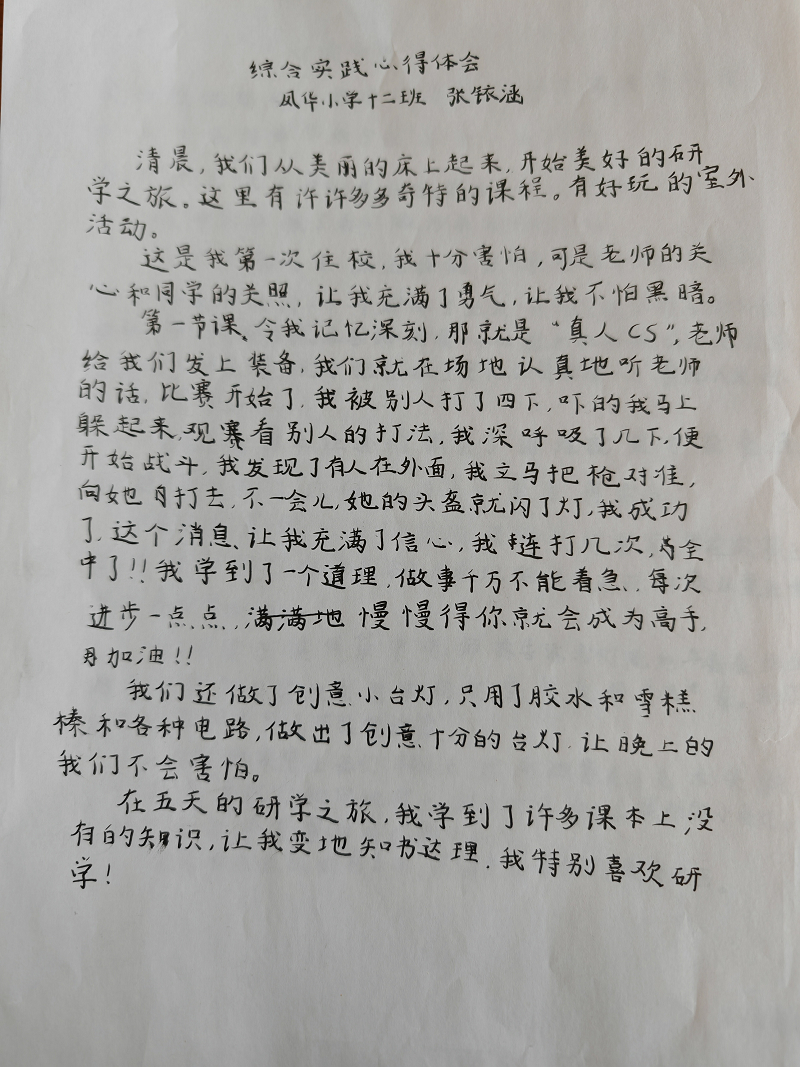 综合实践心得体会
风华小学十二班 张铱涵
清晨,我们从美丽的床上起来,开始美好的研
学之旅。这里有许许多多奇特的课程。有好玩的室外
活动。
这是我第一次住校,我十分害怕,可是老师的关
心和同学的关照,让我充满了勇气,让我不怕黑暗。
第一节课、令我记忆深刻,那就是“真人CS”,老师
给我们发上装备,我们就在场地认真地听老师
的话,比赛开始了,我被别人打了四下,吓的我马上
躲起来,观赛看别人的打法,我深呼吸了几下,便
开始战斗,我发现了有人在外面,我立马把枪对准,
向她打去,不一会儿,她的头盔就闪了灯,我成功
了,这个消息、让我充满了信心,我连打几次,全
中了!!我学到了一个道理,做事千万不能着急、每次
进步一点点,满满地慢慢得你就会成为高手,
加油!!
我们还做了创意小台灯,只用了胶水和雪糕
榛和各种电路,做出了创意十分的台灯,让晚上的
我们不会害怕。
在五天的研学之旅,我学到了许多课本上没
有的知识,让我变地知书达理,我特别喜欢研
学!